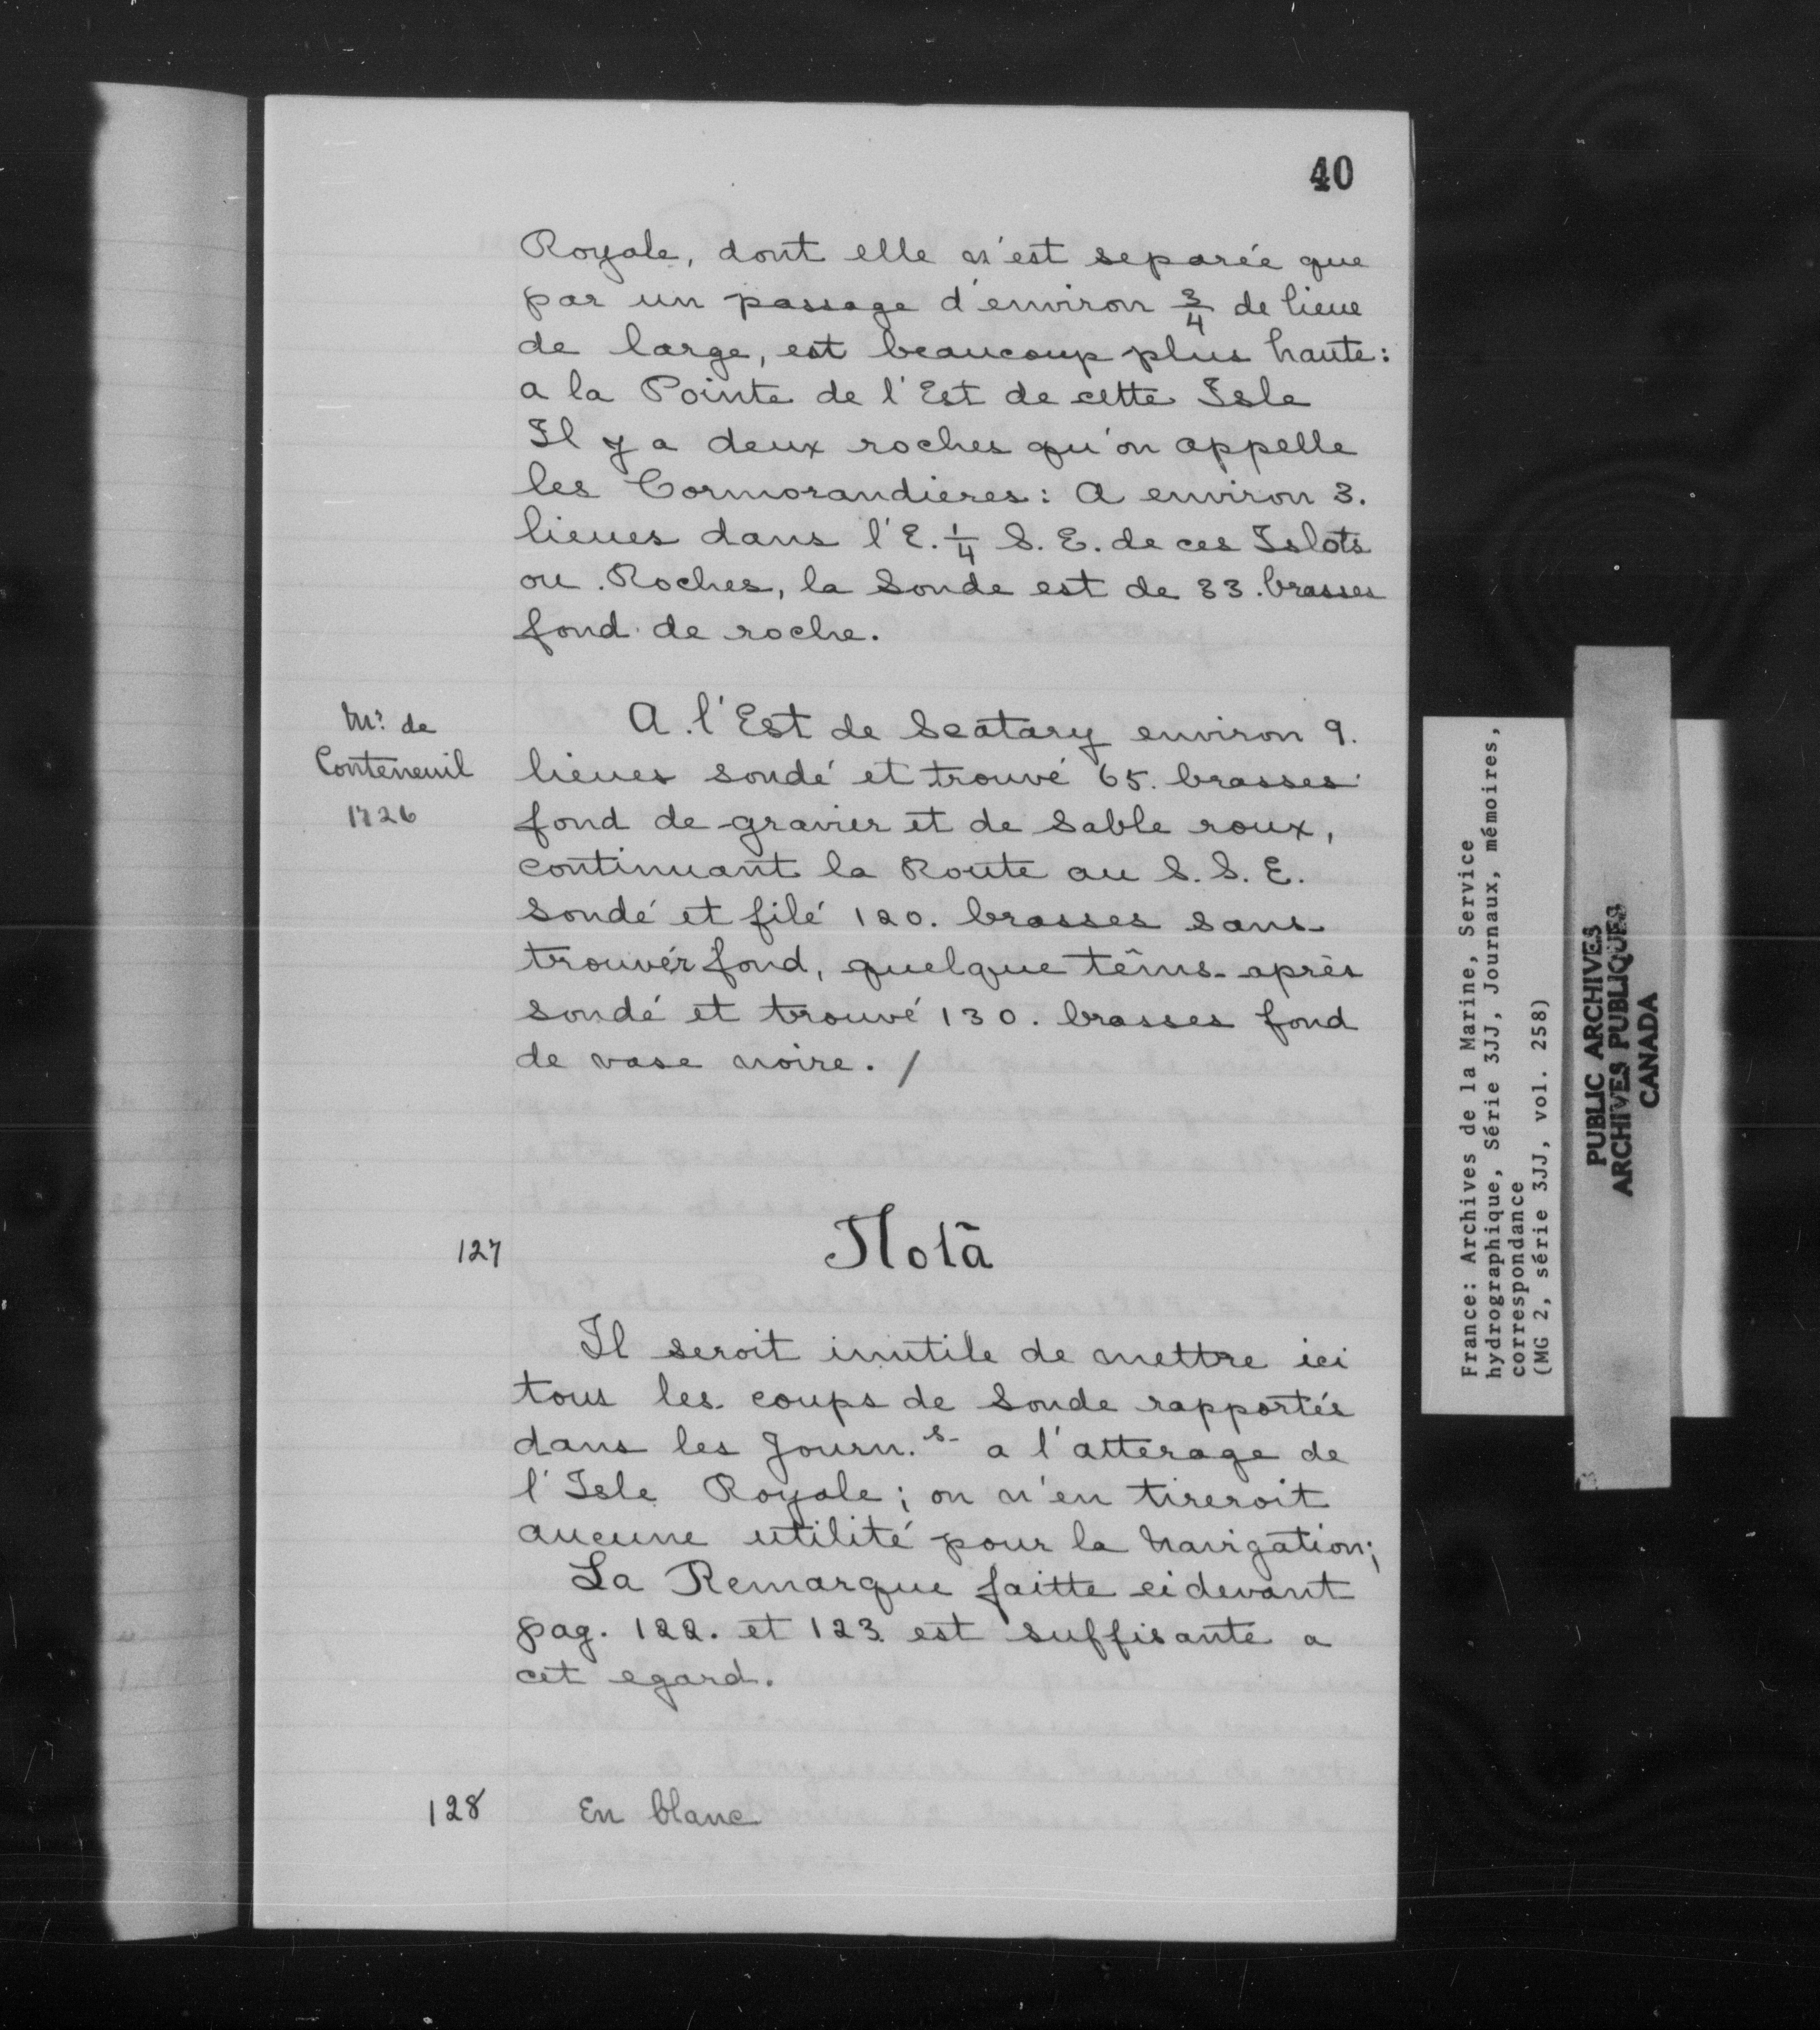 40
Royale, dont elle n'est separée que
par un passage d'environ 3/4 de lieue
de large, est beaucoup plus haute:
a la Pointe de l'Est de cette Isle
Il y a deux roches qu'on appelle
les Cormorandieres: A environ 3.
lieues dans l'E. 1/4 S. E. de ces Islots
ou Roches, la Sonde est de 33. brasses
fond de roche.
Mr. de
Conteneuil
1726
A l'Est de Scatary environ 9.
lieues sondé et trouvé 65. brasses
fond de gravier et de Sable roux,
continuant la Route au S. S. E.
Sondé et filé 120. brasses sans
trouver fond, quelque têms après
sondé et trouvé 130. brasses fond
de vase noire. /
127
Notã
Il seroit inutile de mettre ici
tous les coups de Sonde rapportés
dans les Journ.s a l'atterage de
l'Isle Royale; on n'en tireroit
aucune utilité pour la Navigation;
La Remarque faitte cidevant
pag. 122. et 123 est suffisante a
cet egard.
128
En blanc
France: Archives de la Marine, Service
hydrographique, Série 3JJ, Journaux, mémoires,
correspondance
(MG 2, série 3JJ, vol. 258)
PUBLIC ARCHIVES
ARCHIVES PUBLIQUES
CANADA